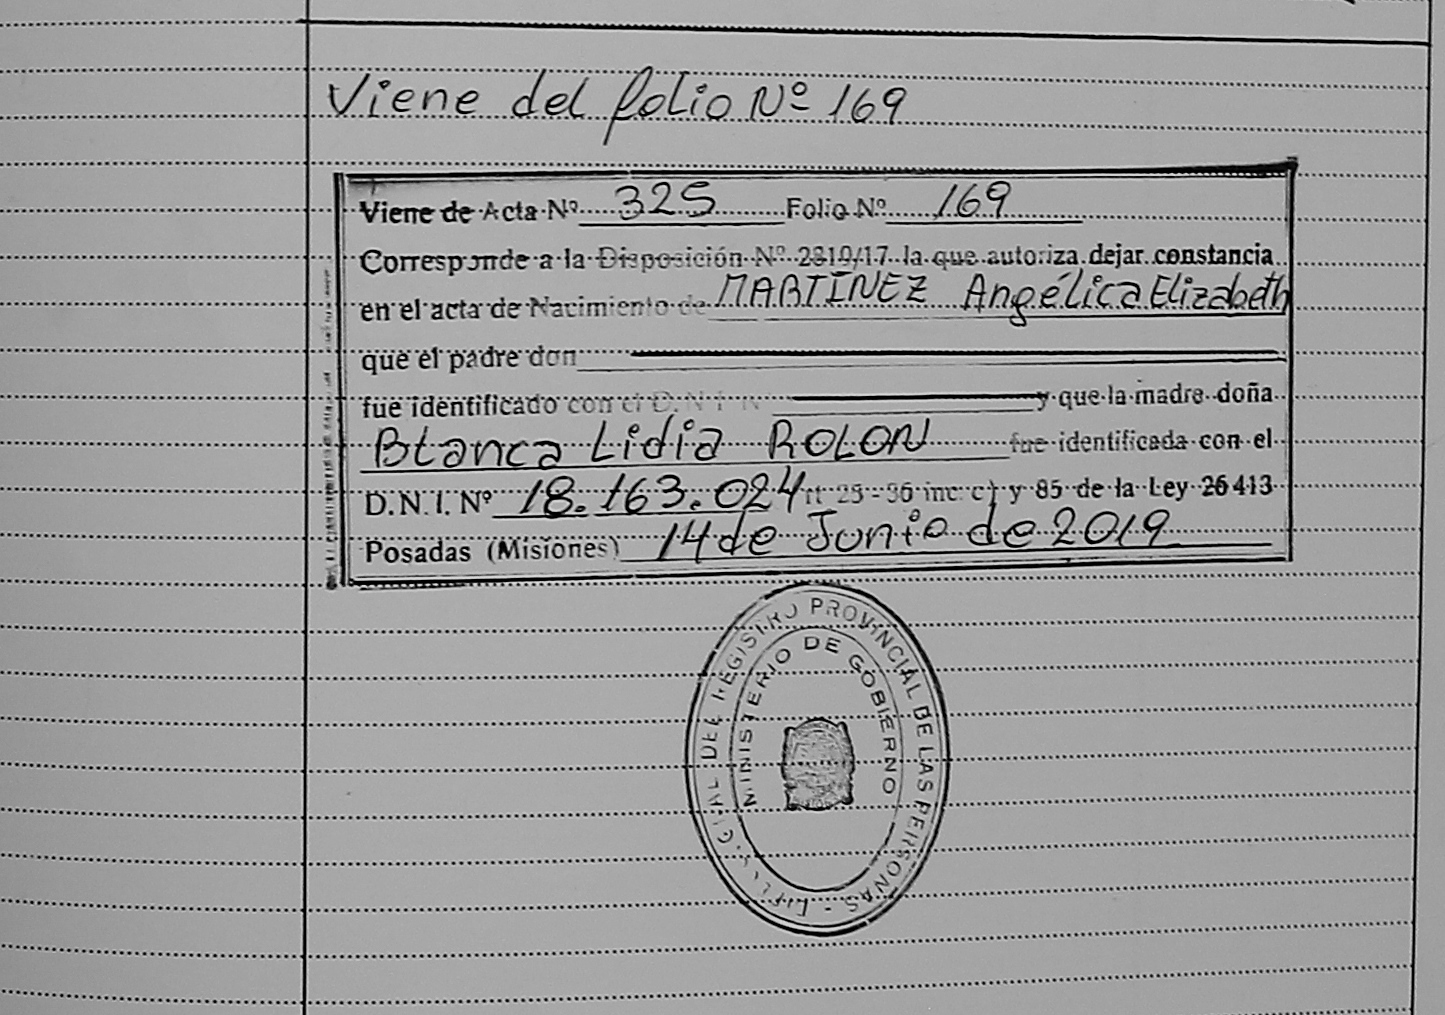 Viene del folio Nº 169
Viene de Acta Nº 325 Folio Nº 169
Corresponde a la Disposición Nº 2810/17 la que autoriza dejar constancia
en el acta de Nacimiento de MARTÍNEZ Angélica Elizabeth
que el padre don
fue identificado con el D.N.I. Nº y que la madre doña
Blanca Lidia ROLON fue identificada con el
D.N.I. Nº 18.163.024 rt 25-36 inc c) y 85 de la Ley 26 413
Posadas (Misiones) 14 de Junio de 2019
DEL REGISTRO PROVINCIAL DE LAS PERSONAS -
MINISTERIO DE GOBIERNO